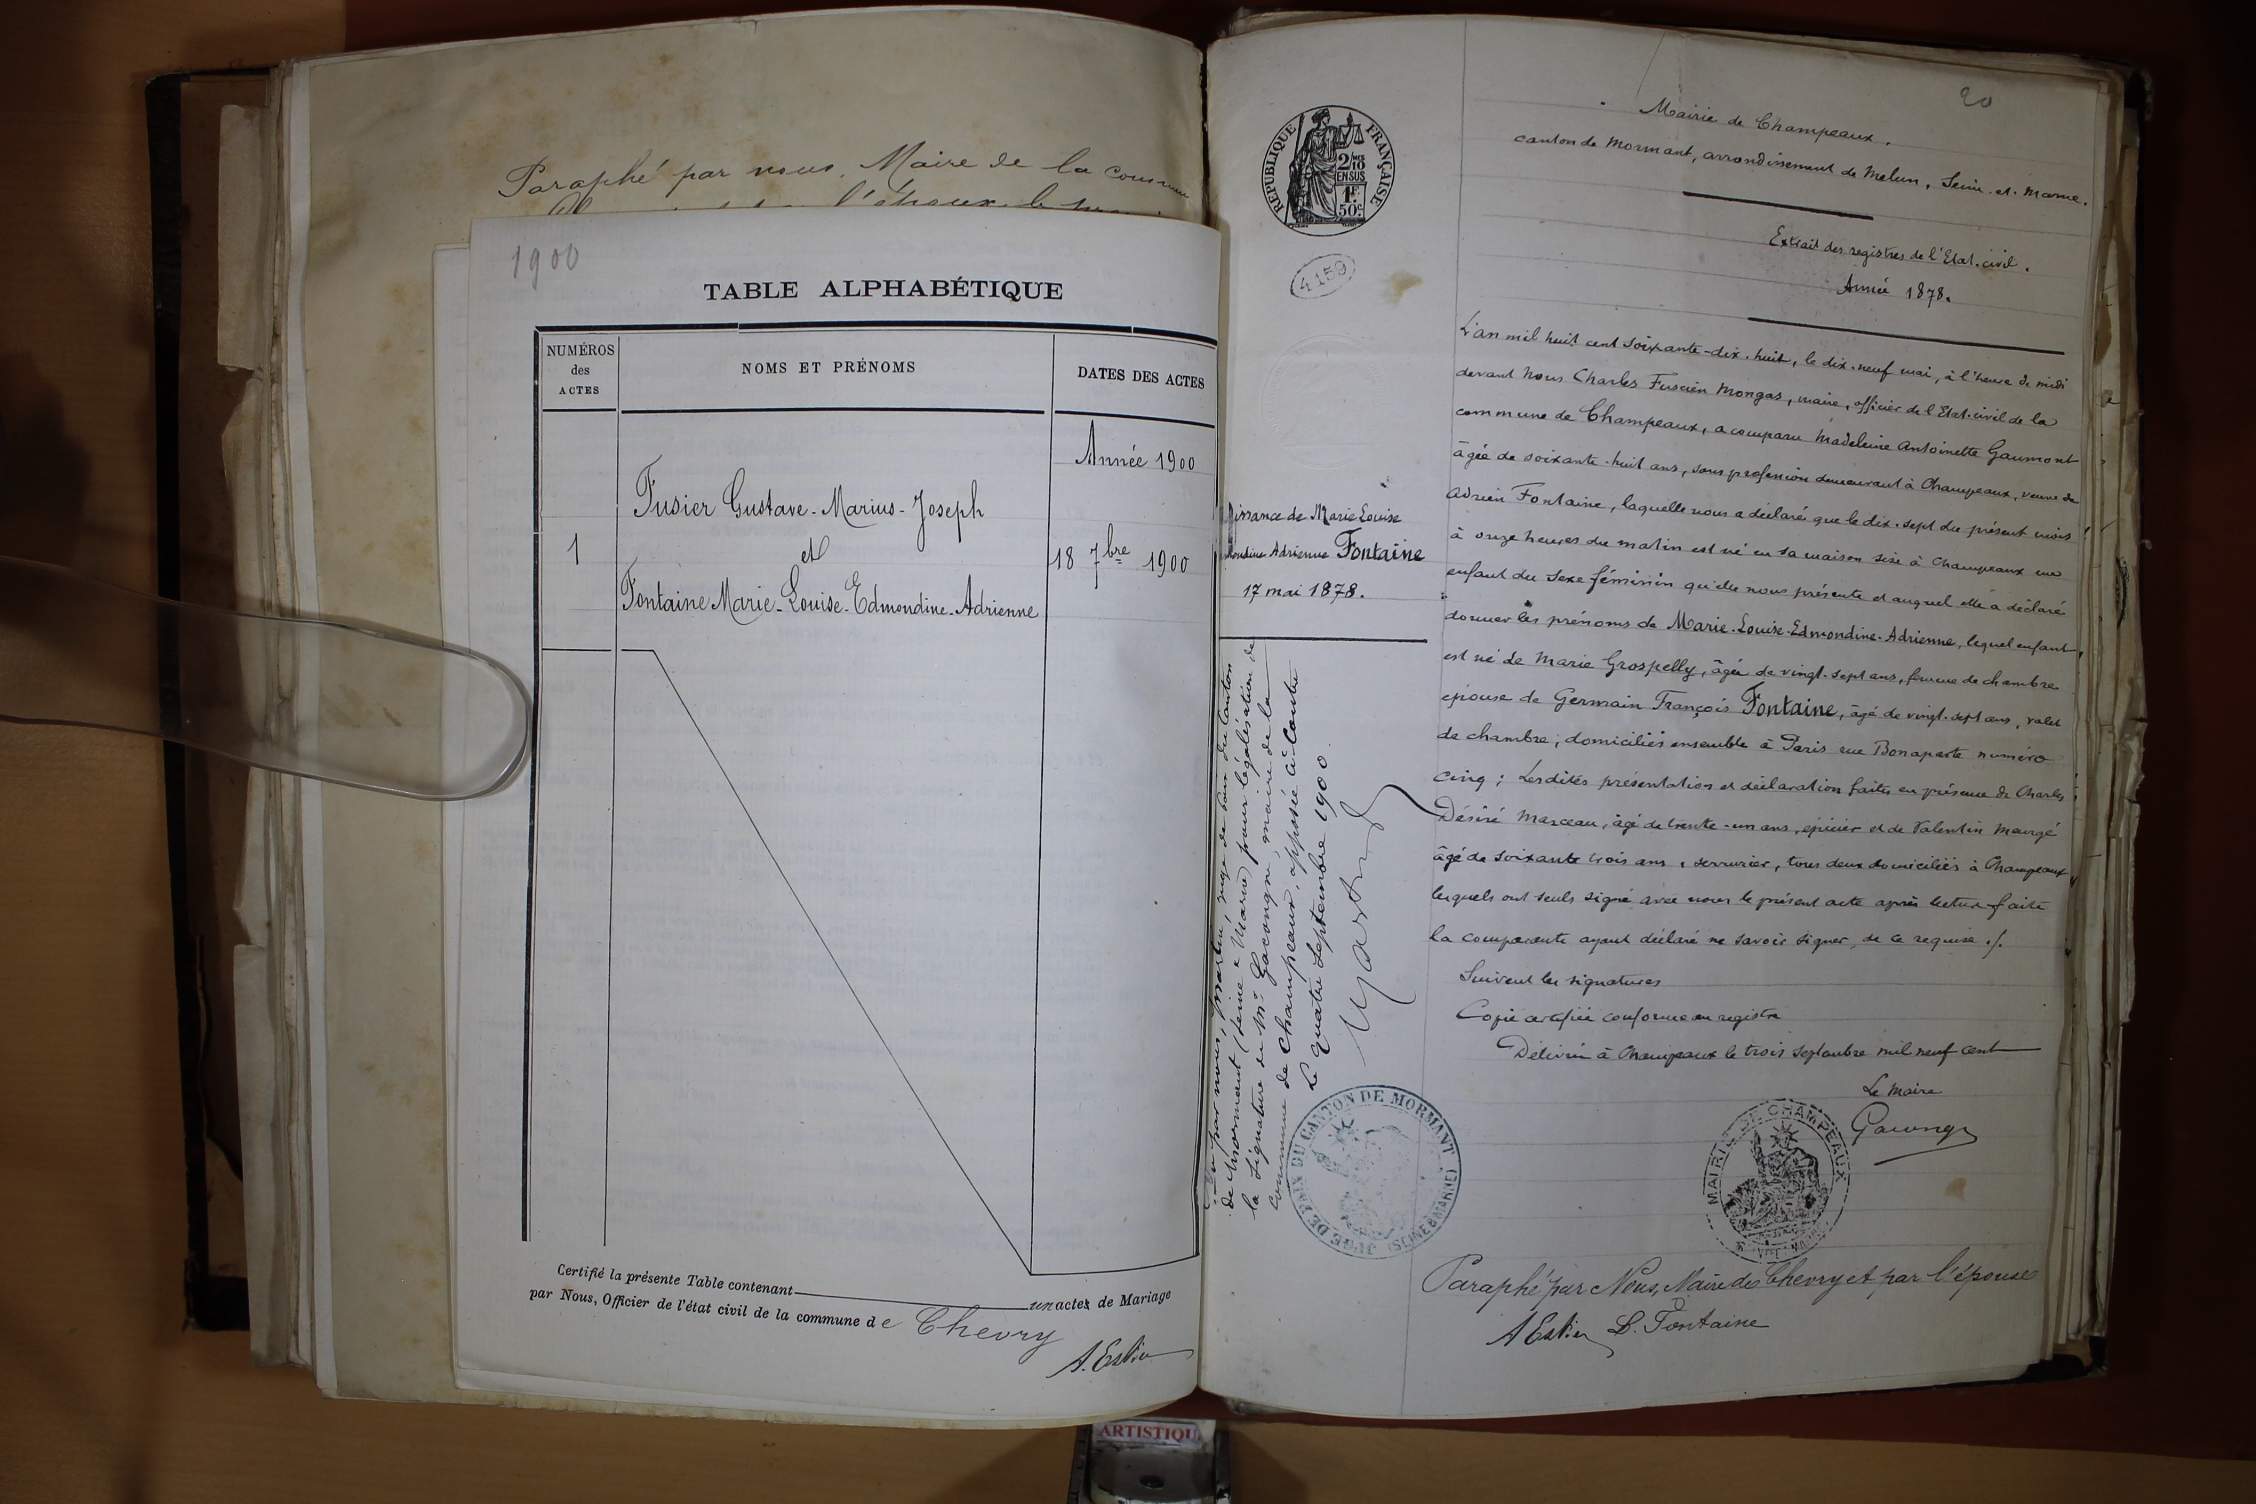 Paraphé par nous, Maire de la commune
l'époux
1900
TABLE ALPHABÉTIQUE
NUMÉROS
des
ACTES
NOMS ET PRÉNOMS
DATES DES ACTES
Année 1900
Fusier Gustave-Marius-Joseph
1
et
18 7bre 1900
Fontaine Marie-Louise-Edmondine-Adrienne
Certifié la présente Table contenant un actes de Mariage
par Nous, Officier de l'état civil de la commune de Chevry
A. Eslin
RÉPUBLIQUE FRANÇAISE
2/10
EN SUS
1F
50c
4159
20
Mairie de Champeaux.
canton de Mormant, arrondissement de Melun, Seine-et-Marne.
Extrait des registres de l'Etat-civil.
Année 1878.
Marie Louise
Adrienne Fontaine
17 mai 1878.
L'an mil huit cent soixante-dix-huit, le dix-neuf mai, à l'heure de midi
devant Nous Charles Fuscien Mongas, maire, officier de l'Etat-civil de la
commune de Champeaux, a comparu Madeleine Antoinette Gaumont
âgée de soixante-huit ans, sans profession demeurant à Champeaux, veuve de
Adrien Fontaine, laquelle nous a déclaré que le dix-sept du présent mois
à onze heures du matin est né en sa maison sise à Champeaux un
enfant du sexe féminin qu'elle nous présente et auquel elle a déclaré
donner les prénoms de Marie-Louise-Edmondine-Adrienne, lequel enfant
est né de Marie Grospelly, âgée de vingt-sept ans, femme de chambre
épouse de Germain François Fontaine, âgé de vingt-sept ans, valet
de chambre; domiciliés ensemble à Paris rue Bonaparte numéro
cinq; Lesdites présentation et déclaration faites en présence de Charles
Désiré Marceau, âgé de trente-un ans, épicier et de Valentin Maugé
âgé de soixante trois ans, serrurier, tous deux domiciliés à Champeaux
lesquels ont seuls signé avec nous le présent acte après lecture faite
la comparante ayant déclaré ne savoir signer, de ce requise ./.
Suivent les signatures
Copie certifiée conforme au registre
Délivré à Champeaux le trois septembre mil neuf cent
Le Maire
Gacongne
Vu par nous, Martin, juge de paix du Canton
de Mormant (Seine & Marne) pour légalisation de
la signature de Mr. Gacongne, maire de la
commune de Champeaux, apposée ci-contre
Le quatre Septembre 1900.
Martin
JUGE DE PAIX DU CANTON DE MORMANT (SEINE & MARNE)
MAIRIE DE CHAMPEAUX
Paraphé par Nous, Maire de Chevry et par l'épouse
A Eslin L. Fontaine
ARTISTIQU